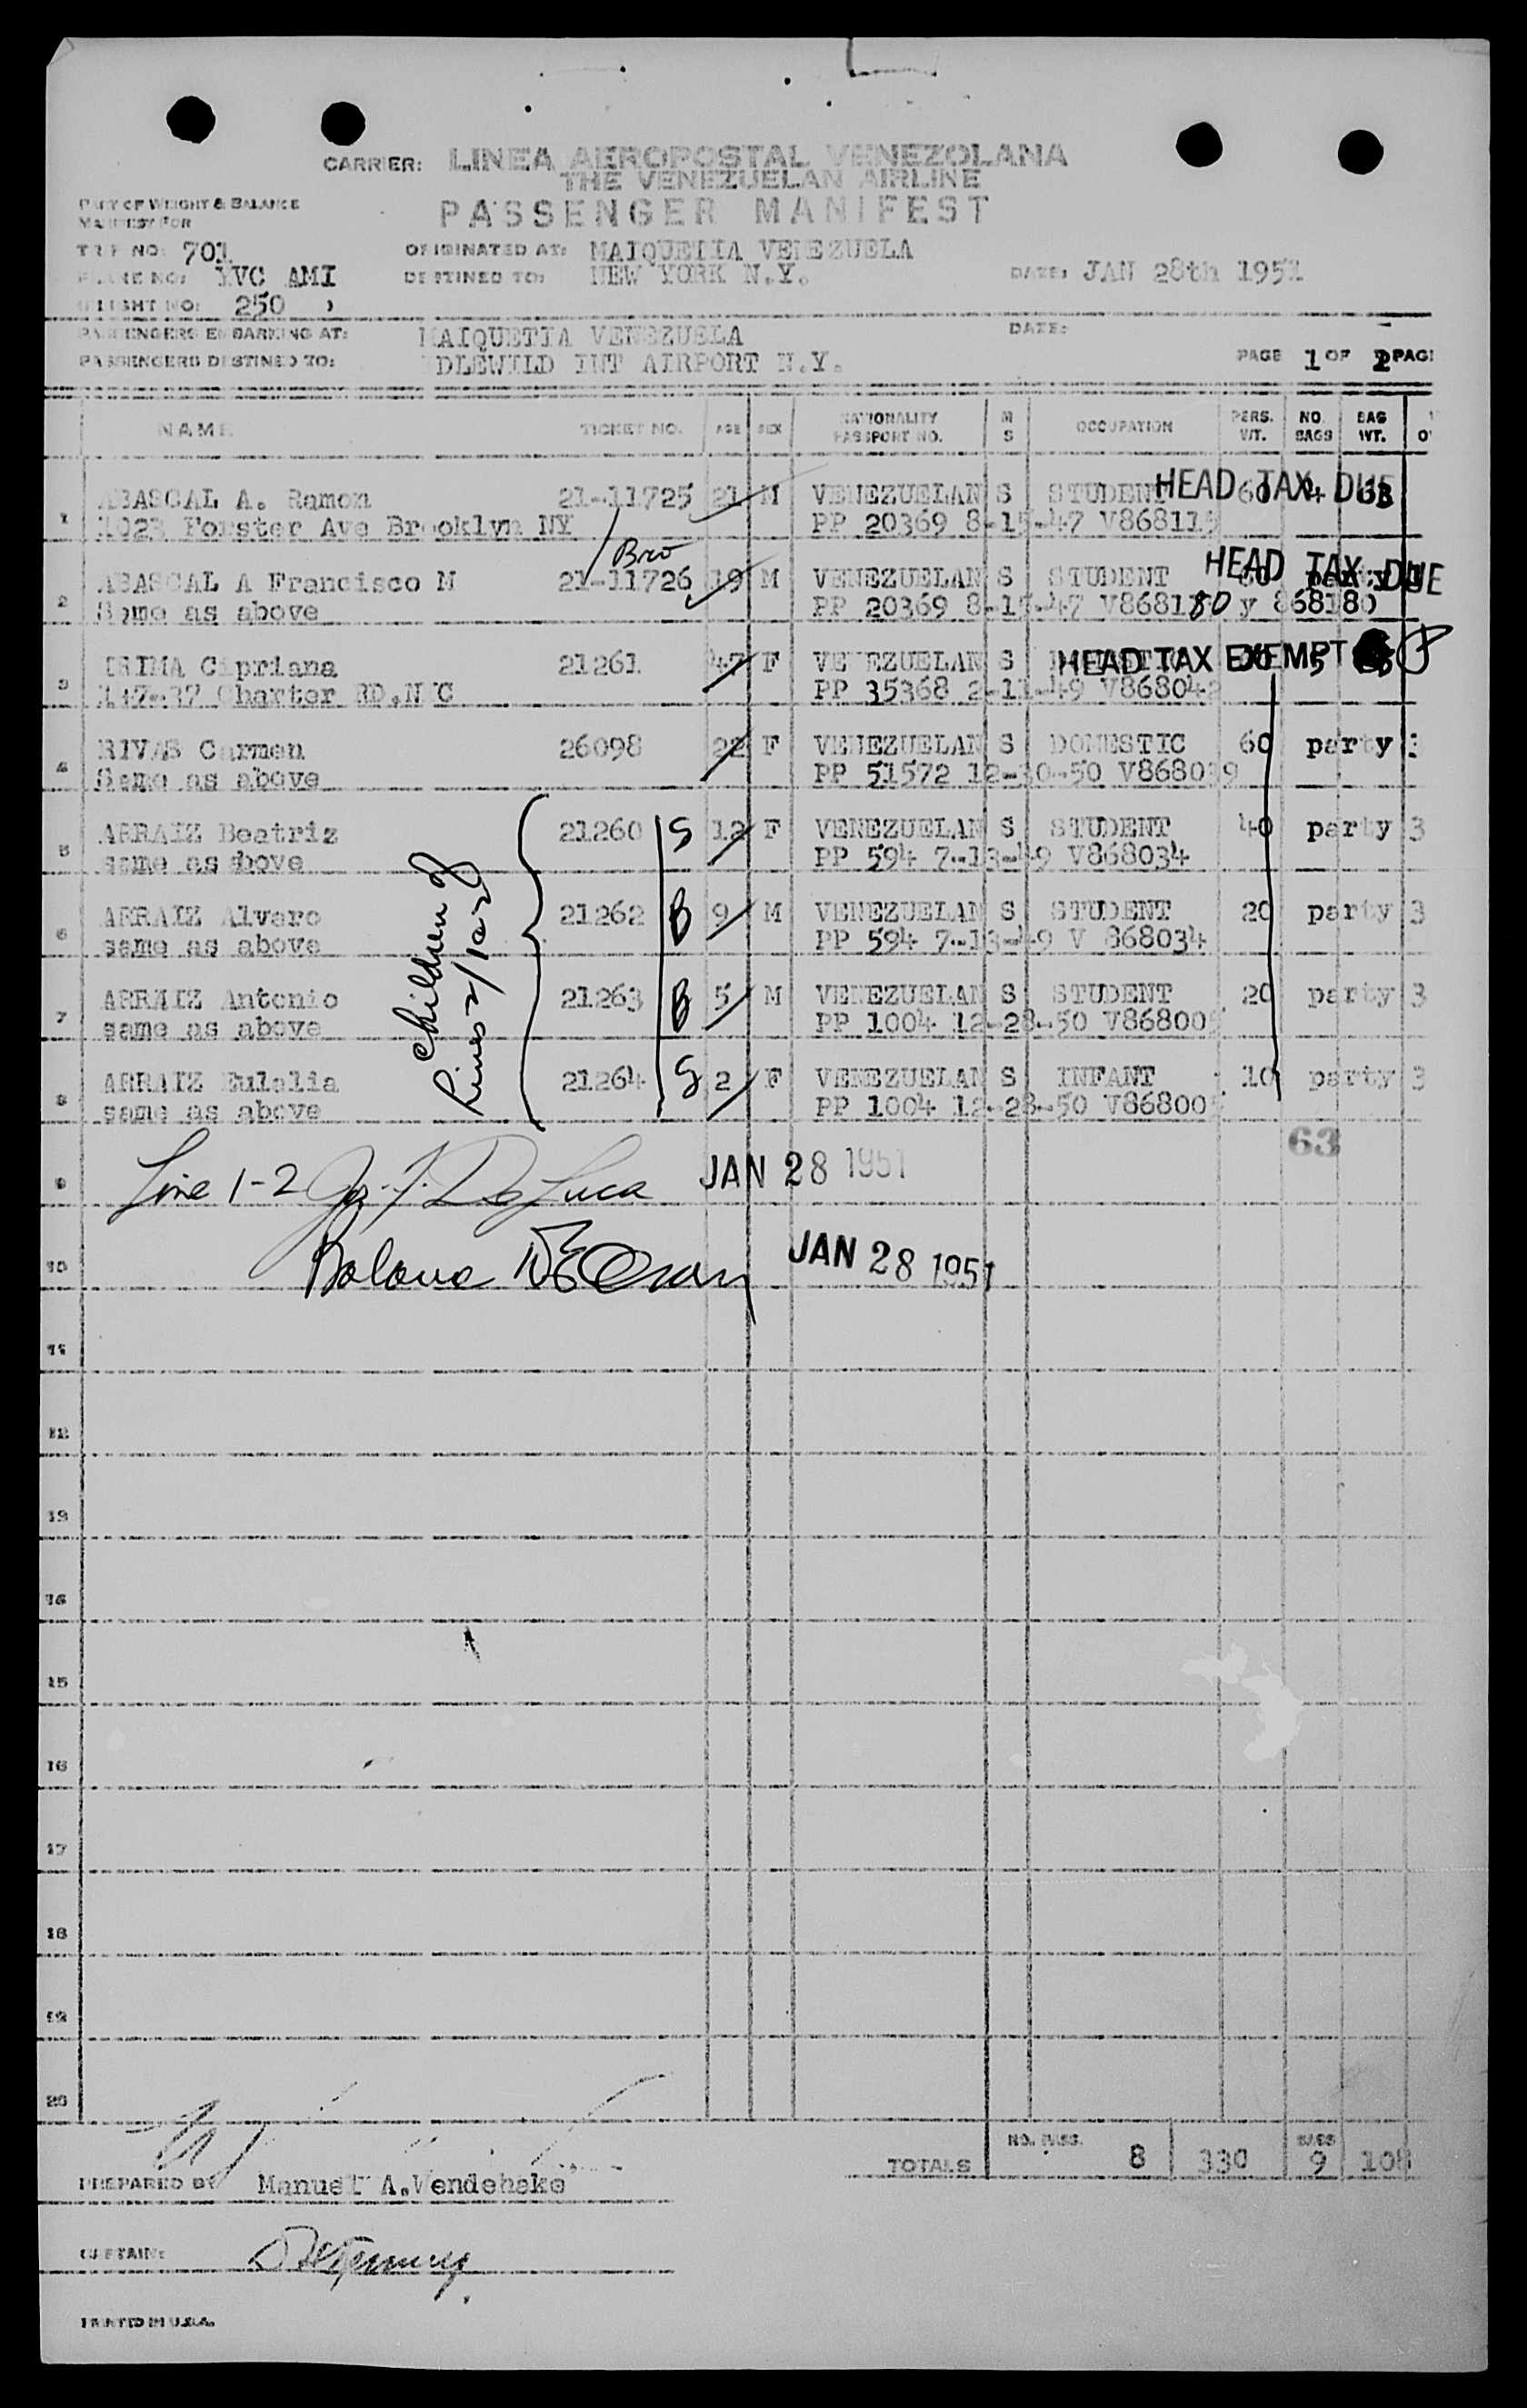 CARRIER: LINEA AEROPOSTAL VENEZOLANA
THE VENEZUELAN AIRLINE
PART OF WEIGHT & BALANCE
MANIFEST FOR
PASSENGER MANIFEST
TRIP NO: 701 ORIGINATED AT: MAIQUETIA VENEZUELA
PLANE NO: YVC AMI DESTINED TO: NEW YORK N.Y. DATE: JAN 28th 1951
FLIGHT NO: 250
PASSENGERS EMBARKING AT: MAIQUETIA VENEZUELA DATE:
PASSENGERS DESTINED TO: IDLEWILD INT AIRPORT N.Y. PAGE 1 OF 2 PAGE
NAME TICKET NO. AGE SEX NATIONALITY PASSPORT NO. M S OCCUPATION PERS. WT. NO. BAGS BAG WT.
1 ABASCAL A. Ramon 21-11725 21 M VENEZUELAN S STUDENT 60 4 HEAD TAX DUE
1023 Forster Ave Brooklyn NY PP 20369 8-15-47 V868115
Bro
2 ABASCAL A Francisco M 21-11726 19 M VENEZUELAN S STUDENT 60 party HEAD TAX DUE
Same as above PP 20369 8-15-47 V868180 y 868180
3 Cipriana 21261 47 F VENEZUELAN S HEAD TAX EXEMPT 5
147-37 Charter RD.NYC PP 35368 2-11-49 V868042
4 RIVAS Carmen 26098 22 F VENEZUELAN S DOMESTIC 60 party 3
Same as above PP 51572 12-30-50 V868039
5 ARRAIZ Beatriz 21260 S 12 F VENEZUELAN S STUDENT 40 party 3
same as above PP 594 7-13-49 V868034
6 ARRAIZ Alvaro 21262 B 9 M VENEZUELAN S STUDENT 20 party 3
same as above PP 594 7-13-49 V 868034
7 ARRAIZ Antonio 21263 B 5 M VENEZUELAN S STUDENT 20 party 3
same as above PP 1004 12-28-50 V868005
8 ARRAIZ Eulalia 21264 S 2 F VENEZUELAN S INFANT 10 party 3
same as above PP 1004 12-28-50 V868005
Children of
Lines 2/
63
9 Line 1-2 Jos. F. De Luca JAN 28 1951
10 JAN 28 1951
11
12
13
14
15
16
17
18
19
20
TOTALS NO. PASS. 8 330 BAGS 9 108
PREPARED BY Manuel A.Wendehake
CAPTAIN:
PRINTED IN U.S.A.